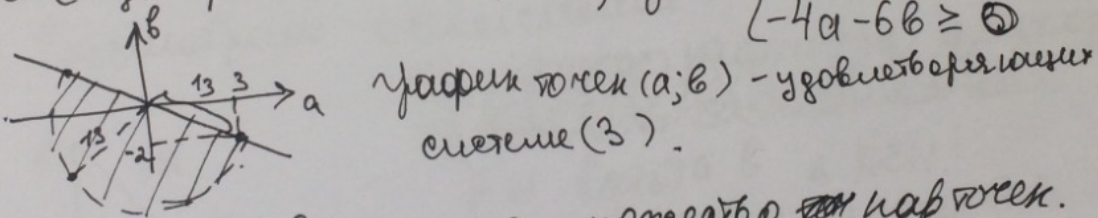 (-4a-6b ≥ 0
b
13 3
a
13
-2
График точек (a;b) - удовлетворяющих
системе (3).
пар точек.